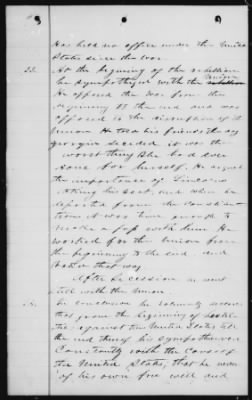 He held no office under the United
States since the war.
22. At the beginning of the rebellion
he sympathized with the Union rebellion
He opposed the war from the
beginning to the end and was
opposed to the disruption of the
Union He told his friends the day
georgia seceded it was the
worst thing she had ever
done for himself, He urged
the importance of
taking his seat, and when he
departed from the Constitu
tion it was time enough to
make a fuss with him He
worked for the Union from
the beginning to the end, and
that way
After secession he went
still with the Union
In conclusion he solemnly
that from the beginning of hostili
ties against the United States to
the end thereof his sympathies were
Constantly with the Cause of
the United States, that he never
of his own free will and